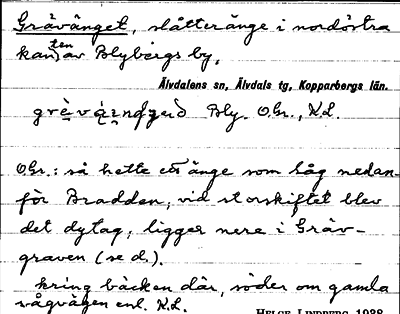 Grävänget, slåtteränge i nordöstra
kanten av Blybergs by.
Älvdalens sn, Älvdals tg, Kopparbergs län.
Bly. O.Gr., K.L.
O.Gr.: så hette ett änge som låg nedan-
för Bradden; vid storskiftet blev
det dytag; ligger nere i Gräv-
graven (se d.).
kring bäcken där, söder om gamla
vågvägen enl. K.L.
HELGE LINDBERG 1988